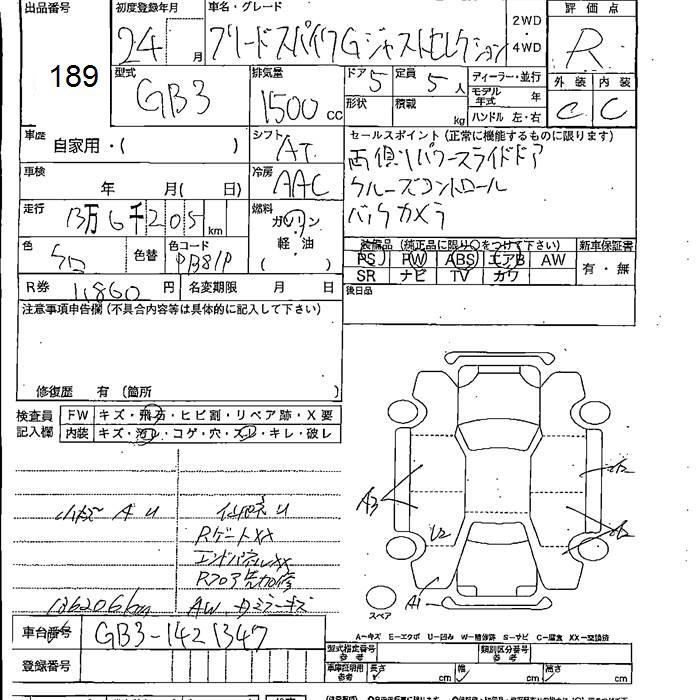 出品番号
189
初度登録年月
24 月
車名・グレード
フリードスパイク Gジャストセレクション
2WD
4WD
評価点
R
型式
GB3
排気量
1500 cc
ドア 5
定員 5 人
形状
積載 kg
ディーラー・並行
モデル年式 年
ハンドル 左・右
外装 内装
C C
車歴
自家用・( )
シフト
AT
セールスポイント(正常に機能するものに限ります)
両側パワースライドドア
クルーズコントロール
バックカメラ
車検
年 月( 日)
冷房
AAC
走行
13万6千205 km
燃料
ガソリン
・
軽・油
( )
色
色替
色コード
PB81P
装備品(純正品に限り○をつけて下さい)
PS PW ABS エアB AW
SR ナビ TV カワ
新車保証書
有・無
R券 11860 円
名変期限 月 日
後日品
注意事項申告欄(不具合内容等は具体的に記入して下さい)
修復歴 有(箇所 )
検査員
記入欄
FW キズ・飛石・ヒビ割・リペア跡・X要
内装 キズ・汚レ・コゲ・穴・スレ・キレ・破レ
A U
RゲートXX
エンドパネルXX
Rフロア
136206km
AW
A3
U2
A1
スペア
A−キズ E−エクボ U−凹み W−補修跡 S−サビ C−腐食 XX−交換済
車台番号
GB3-1421347
登録番号
型式指定番号
参考
類別区分番号
参考
車庫証明用
参考
長さ cm
幅 cm
高さ cm